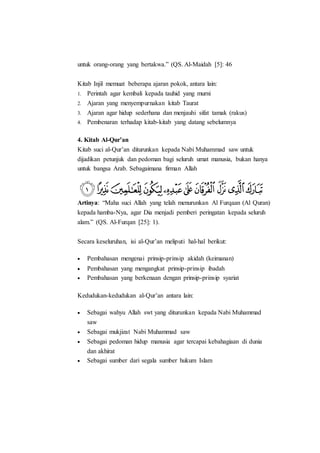 untuk orang-orang yang bertakwa.” (QS. Al-Maidah [5]: 46
Kitab Injil memuat beberapa ajaran pokok, antara lain:
1. Perintah agar kembali kepada tauhid yang murni
2. Ajaran yang menyempurnakan kitab Taurat
3. Ajaran agar hidup sederhana dan menjauhi sifat tamak (rakus)
4. Pembenaran terhadap kitab-kitab yang datang sebelumnya
4. Kitab Al-Qur'an
Kitab suci al-Qur'an diturunkan kepada Nabi Muhammad saw untuk
dijadikan petunjuk dan pedoman bagi seluruh umat manusia, bukan hanya
untuk bangsa Arab. Sebagaimana firman Allah
تَبَارَكَ الَّذِي نَزَّلَ الْفُرْقَانَ عَلَىٰ عَبْدِهِ لِيَكُونَ لِلْعَالَمِينَ نَذِيرًا ١
Artinya: “Maha suci Allah yang telah menurunkan Al Furqaan (Al Quran)
kepada hamba-Nya, agar Dia menjadi pemberi peringatan kepada seluruh
alam.” (QS. Al-Furqan [25]: 1).
Secara keseluruhan, isi al-Qur'an meliputi hal-hal berikut:
• Pembahasan mengenai prinsip-prinsip akidah (keimanan)
• Pembahasan yang mengangkat prinsip-prinsip ibadah
• Pembahasan yang berkenaan dengan prinsip-prinsip syariat
Kedudukan-kedudukan al-Qur'an antara lain:
• Sebagai wahyu Allah swt yang diturunkan kepada Nabi Muhammad
saw
• Sebagai mukjizat Nabi Muhammad saw
• Sebagai pedoman hidup manusia agar tercapai kebahagiaan di dunia
dan akhirat
• Sebagai sumber dari segala sumber hukum Islam